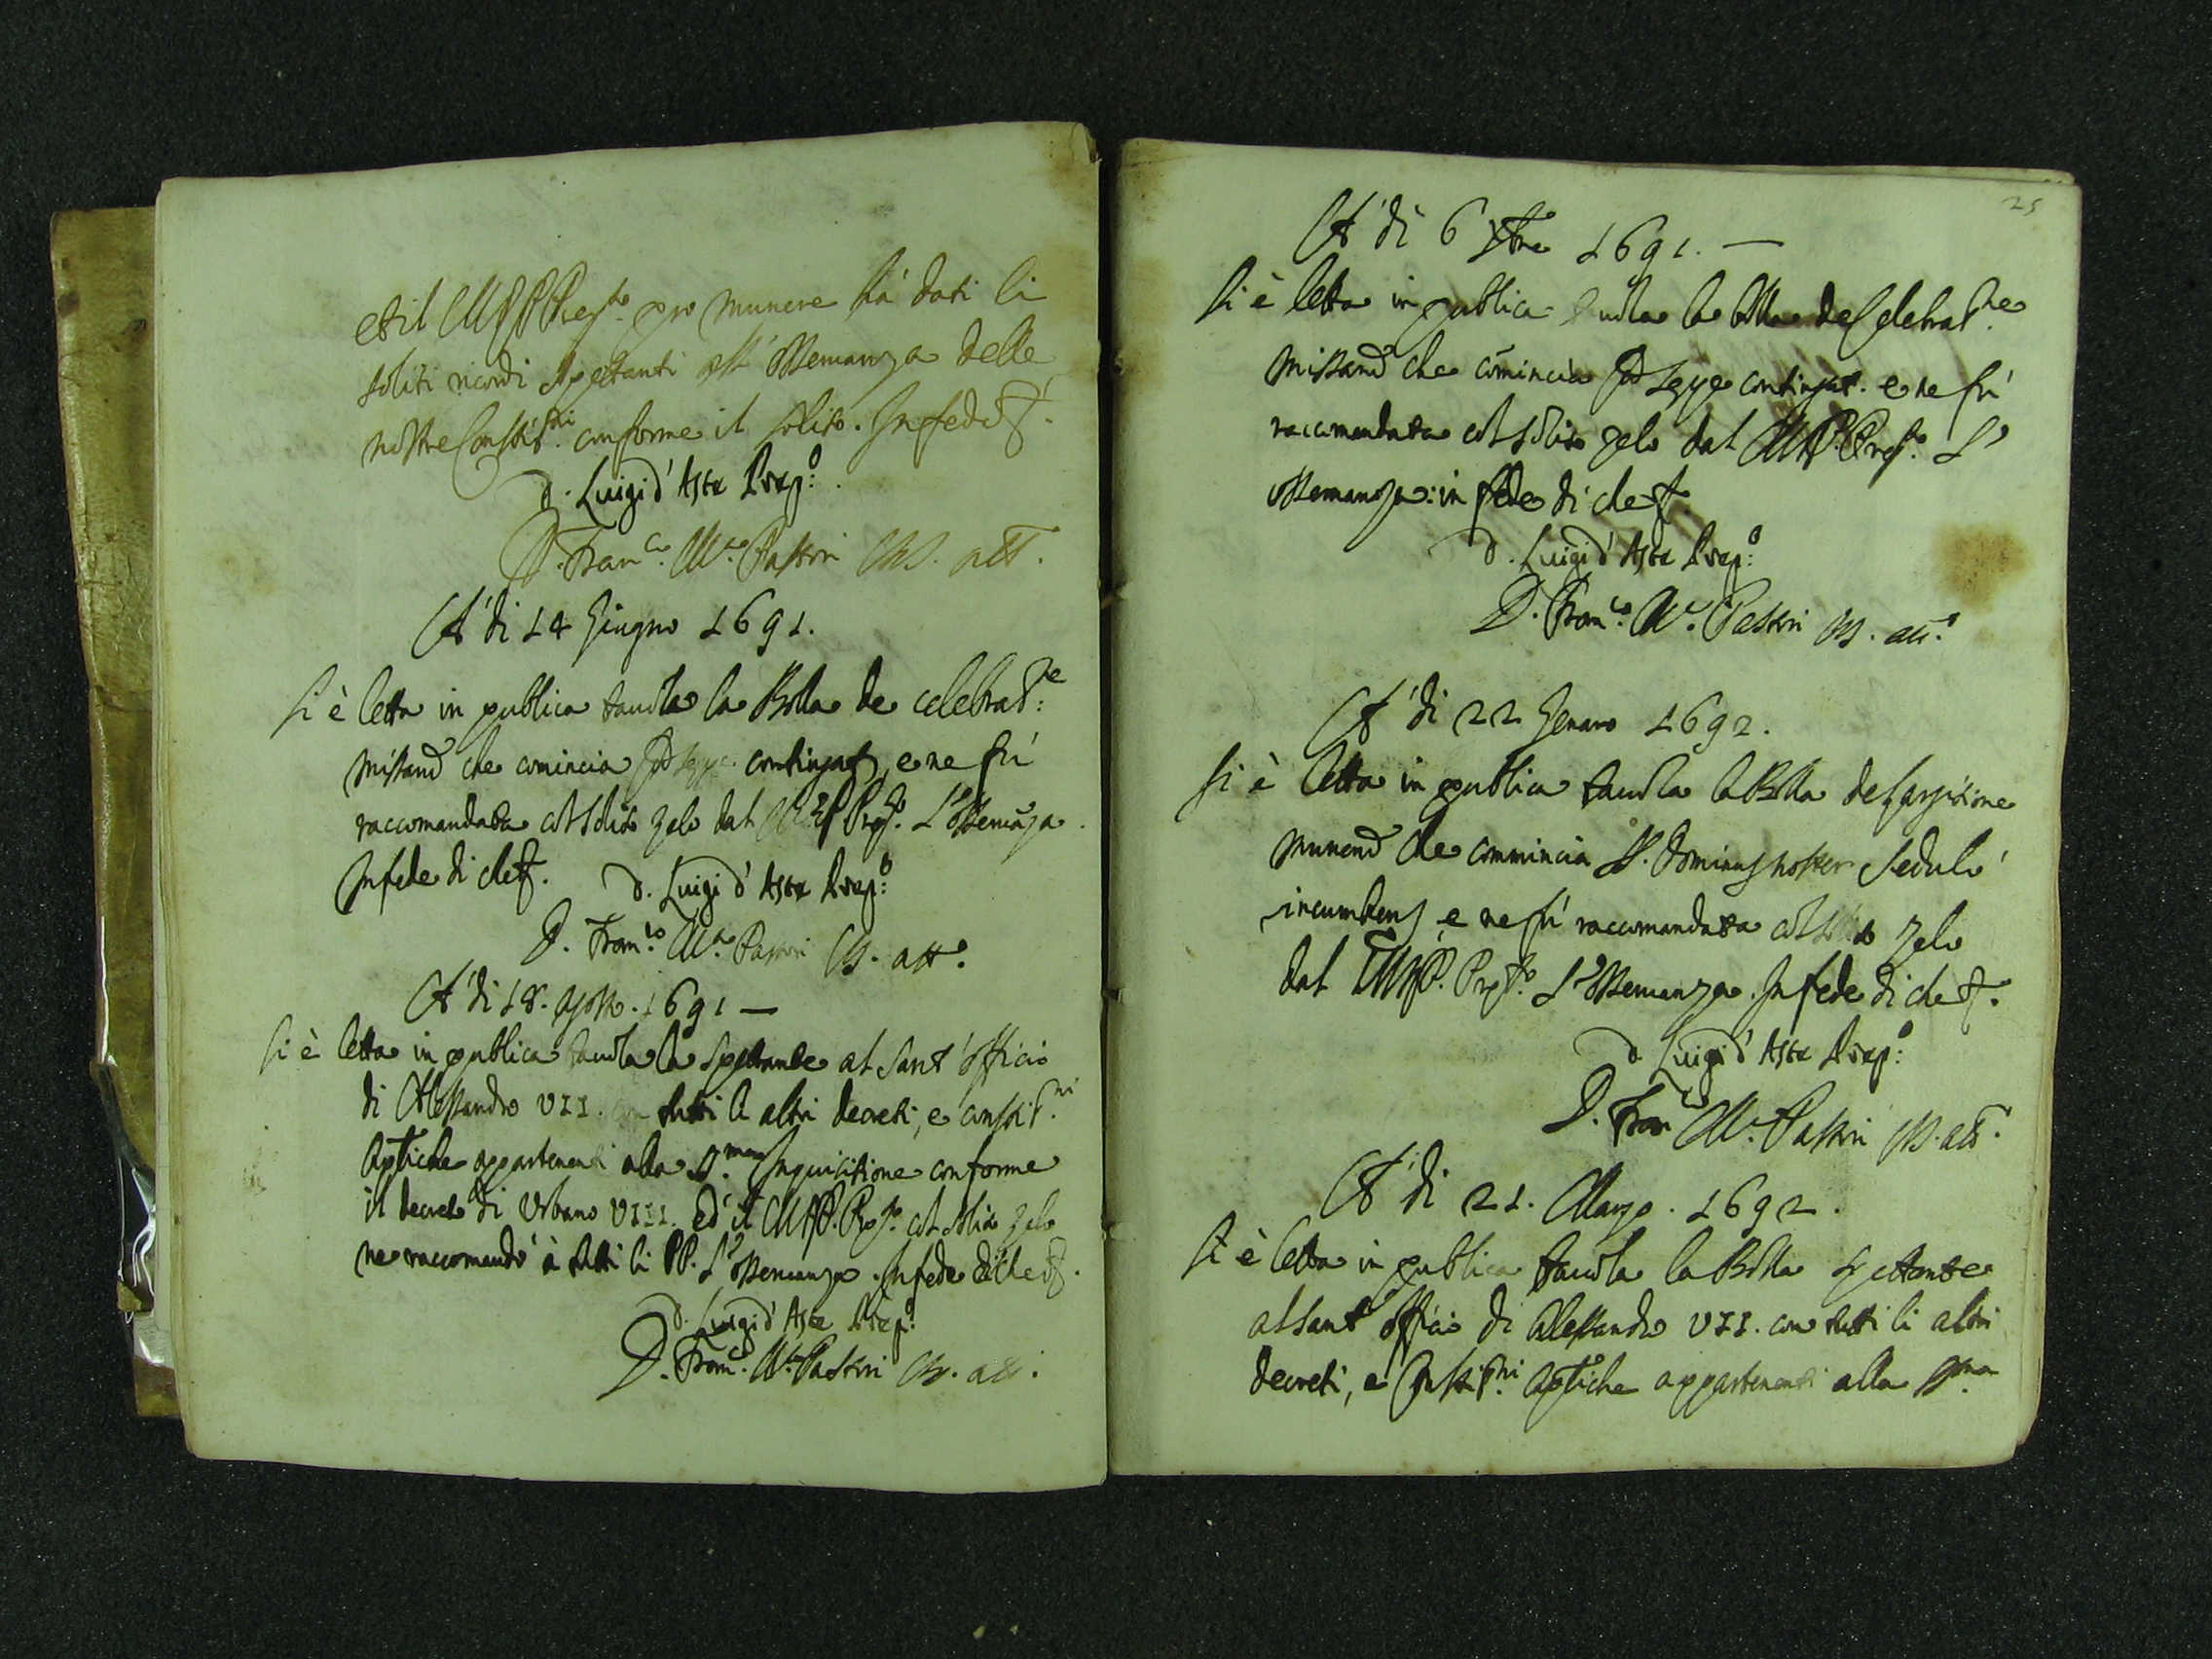 et il M.R.P. Prep.to pro munere hà dati li
soliti ricordi spettanti all' osseruanza delle
nostre Constit.ni conforme il solito. In fede &.
D. Luigi d'Aste Prep:o
D. Fran.co M.a Passeri att.
A' di 14 Giugno 1691.
Si è letta in publica tauola la Bolla de celebrat:e
Missarũ che comincia Qd sępe contingat, e ne fù
raccomandata col solito zelo dal M.R.P. Prep.to L'osseruãza.
In fede di che &.
D. Luigi d'Aste Prep:o
D. Fran.co M.a Passeri att.o
A' di 18. Agosto. 1691 —
Si è letta in publica tauola la spettante al sant'officio
di Alessandro VII. con tutti li altri decreti, e constit.ni
Aptliche appartenenti alla S.ma Inquisitione conforme
il decreto di Vrbano VIII. ed il M.R.P. Prep.to col solito zelo
ne raccomandò à tutti li PP. L'osseruanza. In fede di che &.
D. Luigi d'Aste Prep:o
D. Fran.co M.a Passeri att.
25
A' di 6 1691. —
Si è letta in publica tauola la bolla de Celebrat.ne
Missarũ che cõmincia Qd sępe contingat. e ne fù
raccomandata col solito zelo dal M.R.P. Prep.to L'
osseruanza: in fede di che &.
D. Luigi d'Aste Prep:o
D. Fran.co M.a Passeri att.o
A' di 22 Genaro 1692.
Si è letta in publica tauola la Bolla de Largitione
Munerũ che commincia Dominus noster sedulò
incumbens e ne fù raccomandata col solito zelo
dal M.R.P. Prep.to L'osseruanza. In fede di che &.
D. Luigi d'Aste Prep:o
D. Fran.co M.a Passeri att.
A' di 21. Marzo. 1692.
Si è letta in publica tauola la Bolla spettante
al sant'officio di Alessandro VII. con tutti li altri
decreti, e Constit.ni Aptliche appartenenti alla S.ma